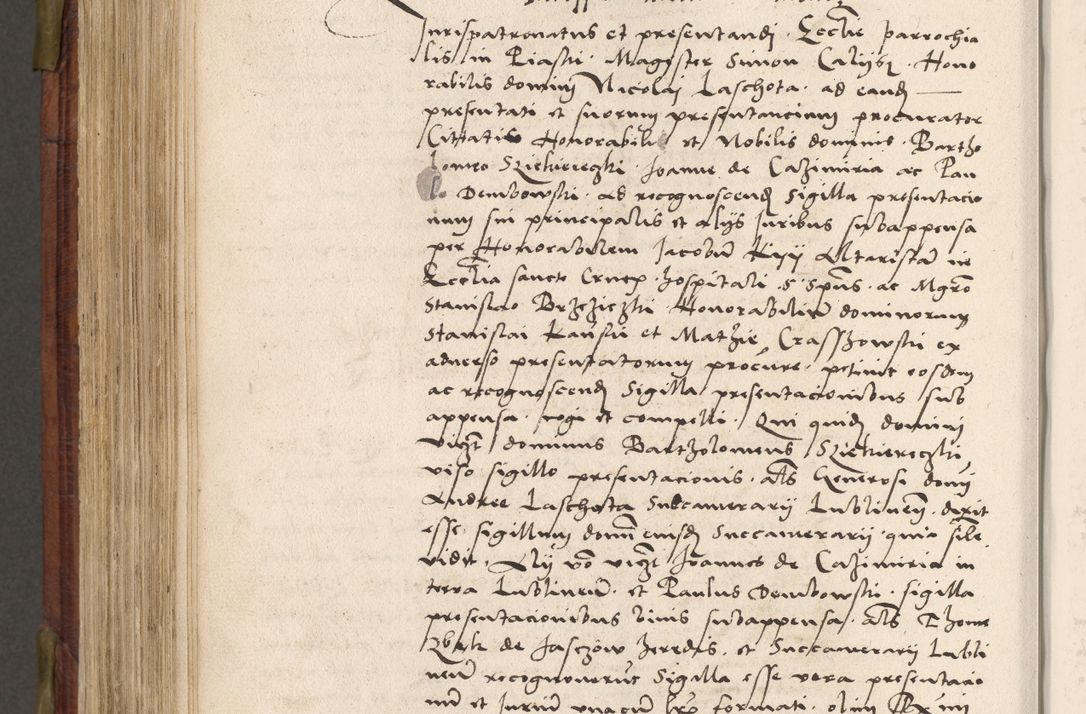 Jurispatronatus et presentandj Eccl̄ie parrochia
lis in Piaski Magister Simon Hono
rabilis dominj Nicolaj Laschota ad eand̄
presentati et suorum presentancium procurator
Cittatis Honorabili et Nobilis dominis Bartho
lomeo Sziekierzeczki Joanne de Cazimiria ac Pau
lo Dembowski ad recognoscend̄ Sigilla presentacio
num sui principalis et alijs Juribus subappensa
per Honorabilem Jacobum Altaristam in
Ecclīa sancte Crucis hospitali S Sp̄us ac Mgr̄o
Stanislao Brzeziczki Honorabilium dominorum
Stanislai et Mathie Crasszowski ex
aduerso presentatorum procure petiuit eosdem
ac recognoscend̄ Sigilla presentacionibus sub
appensa cogi et compelli Qui quid̄ dominj
vicz̄t dominus Bartholomeus Sziekierzeczki
viso sigillo presentacionis al̄s Generosi domi
Andree Laschota Succamerarij Lublinen̄ dixit
esse sigillum domini eiusd̄ Succamerarij quia sil̄e
vidit Alij vō vicz̄t Joannes de Cazimiria in
terra Lublinen̄ et Paulus Dembowski sigilla
presentacionibus binis subappensa al̄s Thome
de Jaschow heredis et Succamerarij Lubli
nen̄ recognouerunt Sigilla esse vera presentacio
num et Jurium vnacum formati olim